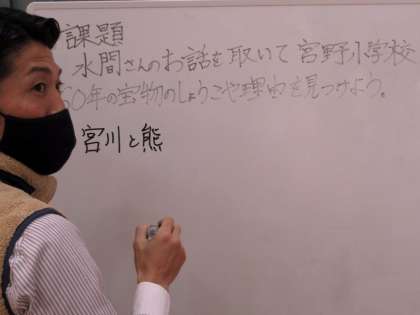 課題
水間さんのお話を取いて宮野小学校
50年の宝物のしょうこや理由を見つけよう。
宮川と熊